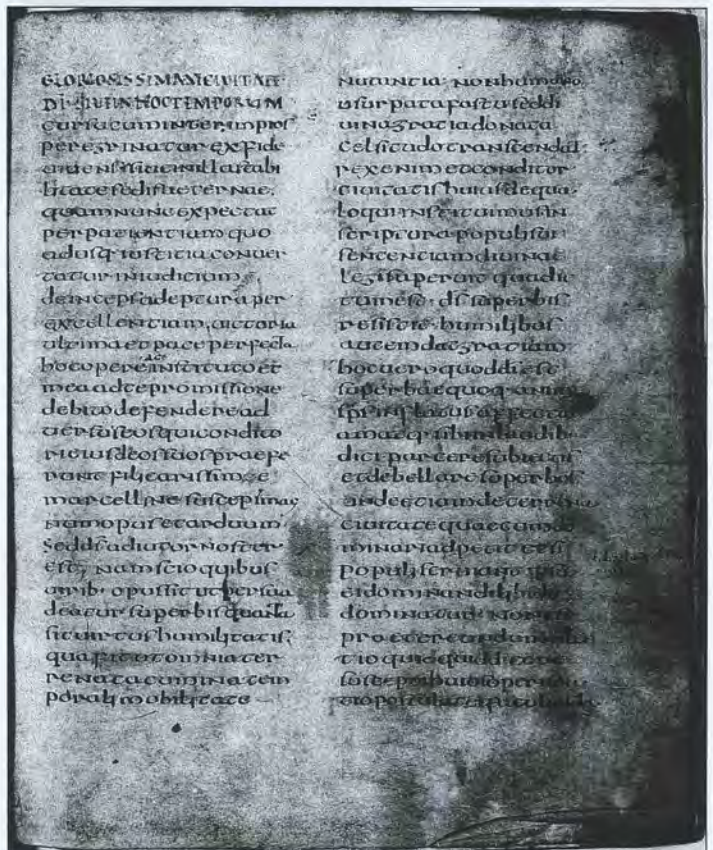 GLORIOSISSIMAMCIUITATE
DISIUEINHOCTEMPORUM
cursucuminterimpios
peregrinaturexfide
uiuenssiueinillastabi
litatesedisaeternae;
quamnuncexpectat
perpatientiamquo
adusq·iustitiaconuer
taturiniudicium;
deincepsadepturaper
excellentiam,uictoria
ultimaetpaceperfecta
hocopereinstitutoet
meaadtepromissione
debitodefenderead
uersuseosquicondito
rieiusdeossuospraefe
runt·filicarissime
marcellinesuscepimag
numopusetarduum
sedd̄sadiutornoster
est; namscioquibus
uirib·opussitutpersua
deatursuperbisquanta
situirtushumilitatis;
quafitutomniater
renacacuminatem
poralimobilitate
nutantia·nonhumano
usurpatafastuseddi
uinagratiadonata
celsitudotranscendat·
rexenimetconditor
ciuitatishuiusdequa
loquiinstituimusin
scripturapopulisui
sententiamdiuinae
legisaperuitquadic
tumest·d̄ssuperbis
resistit·humilibus
autemdatgratiam
hocueroquoddīest
superbaequoq·animae
sp̄sinflatusaffectat
amatq·sibiinlaudib·
diciparceresubiectis
etdebellaresuperbos
undeetiamdeterrena
ciuitatequaecumdo
minariadpetitetsi
populiseruiant
eidominandilibido
dominatur·nonest
praetereundumsilen
tioquidquiddicere
susceptihuiusoperis
tiopostulat